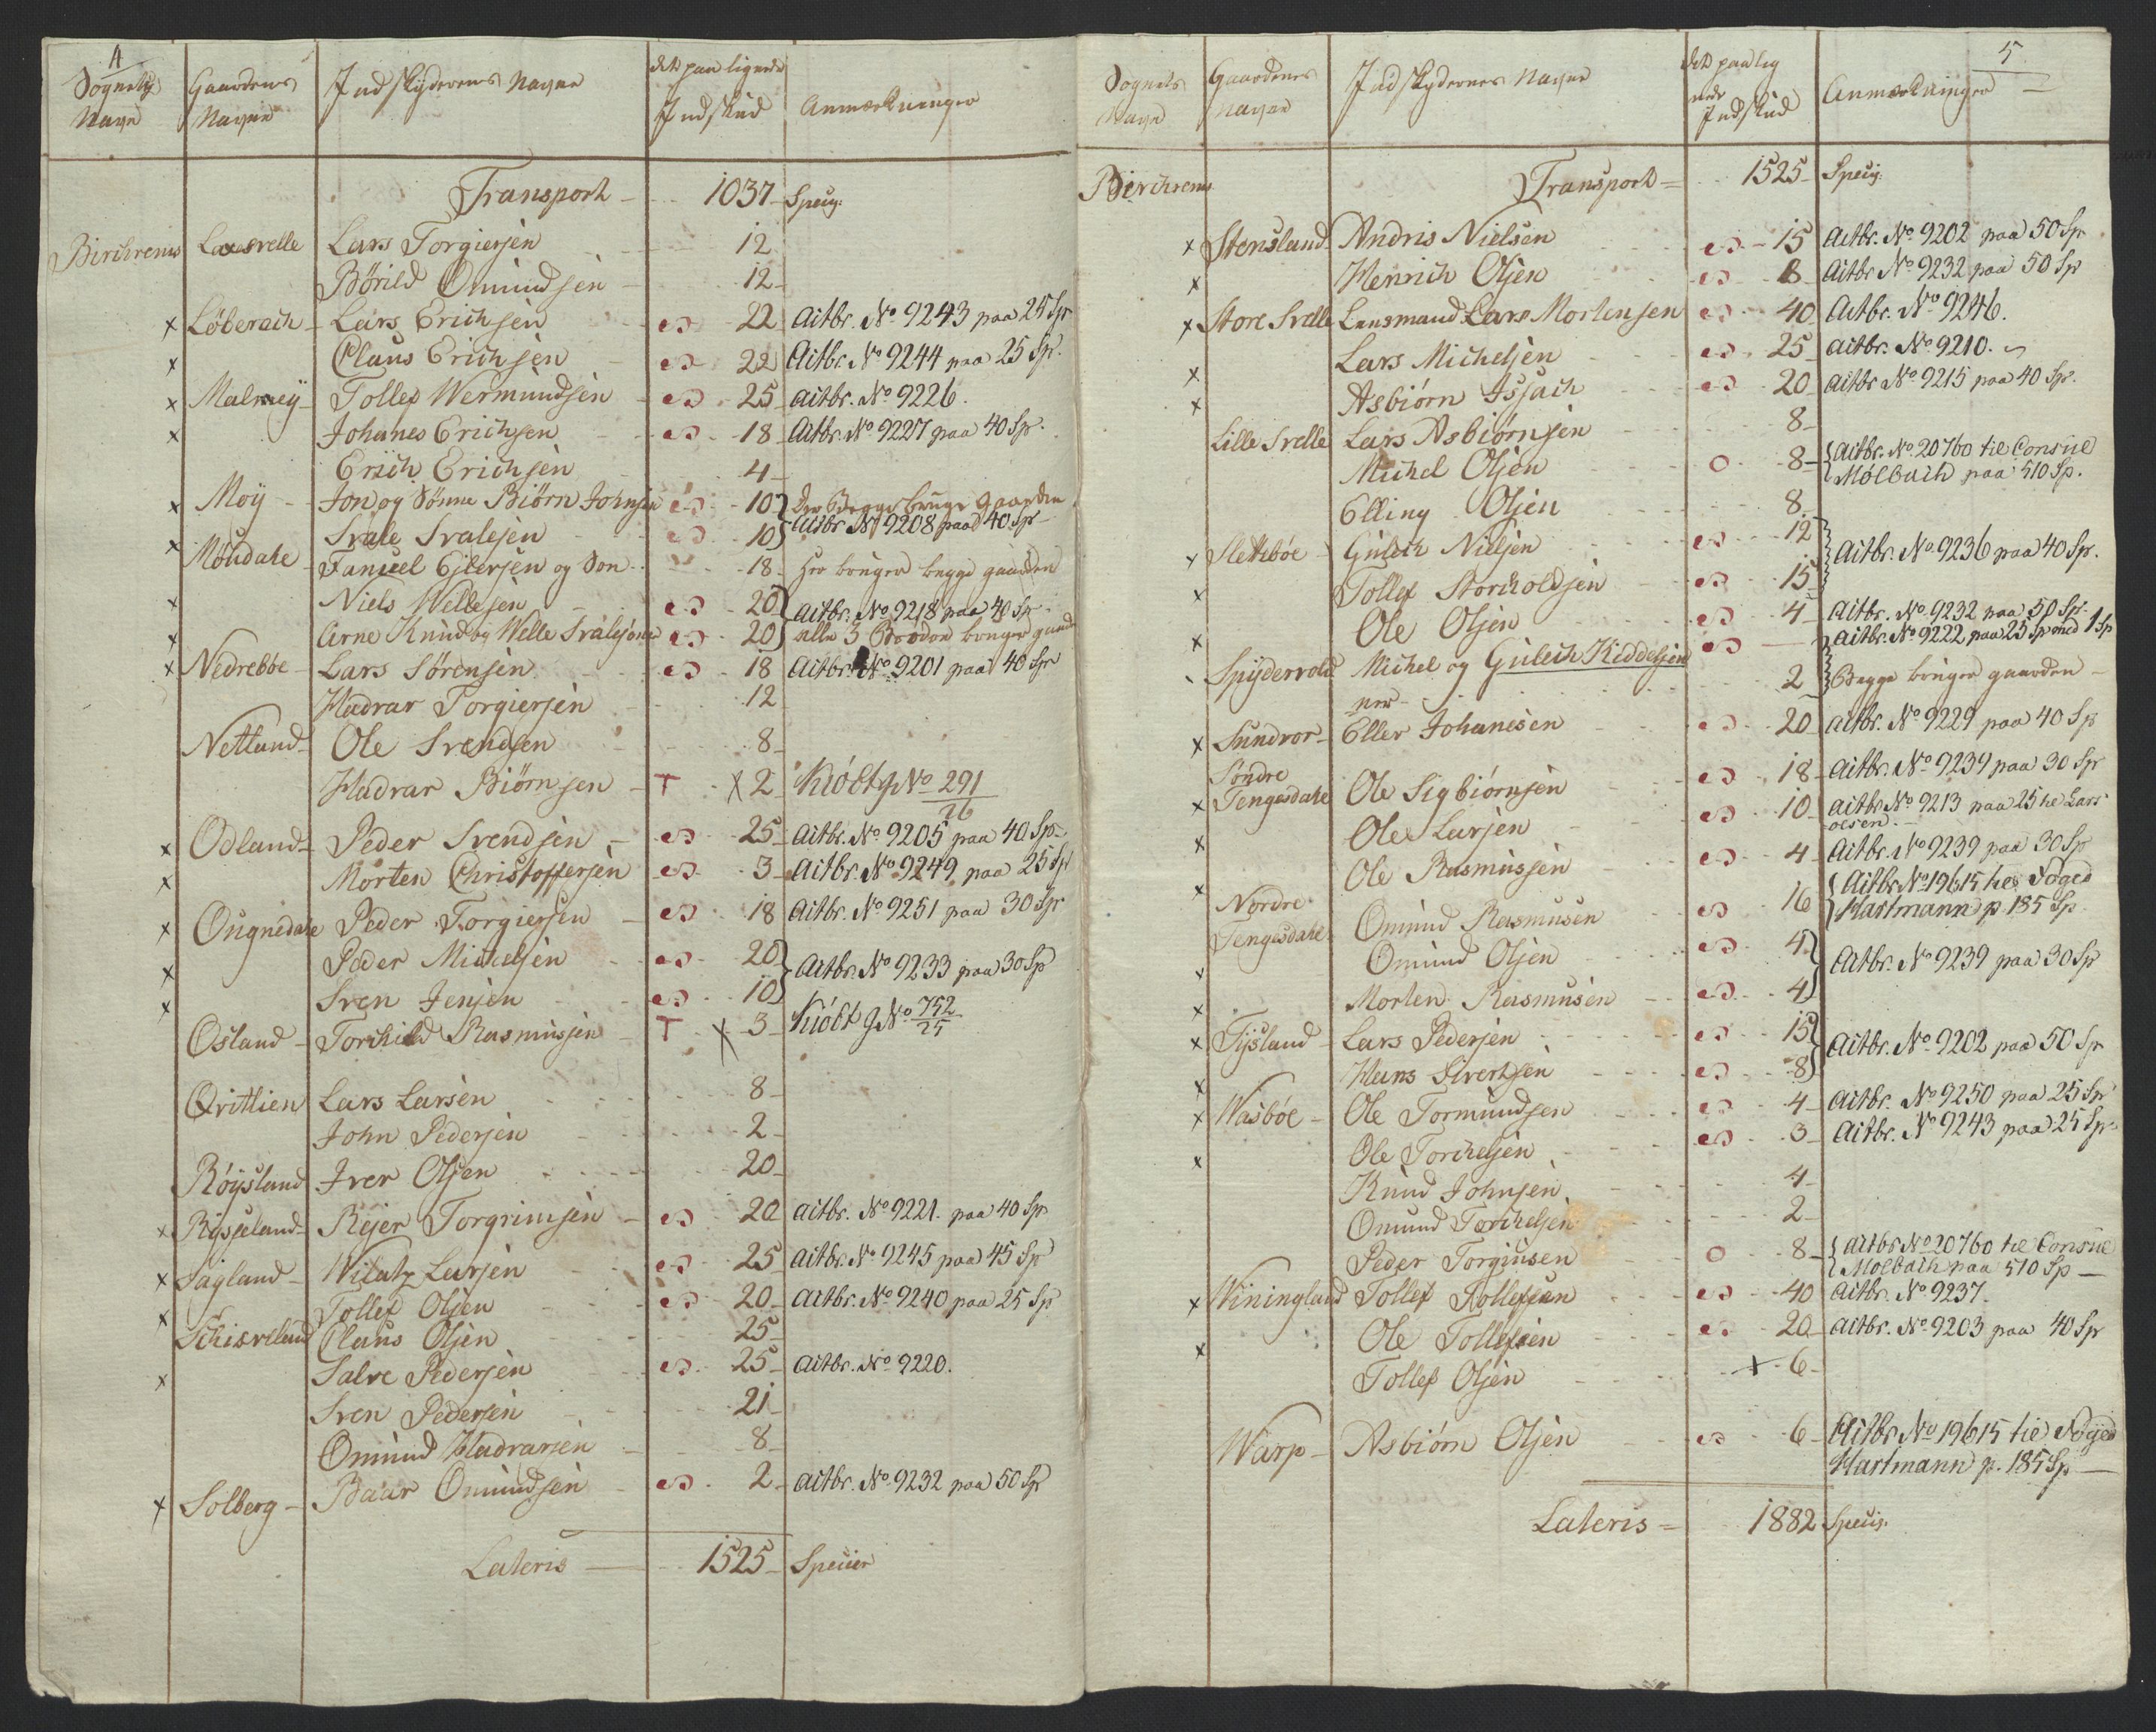 4
Sognets Navn | Gaardens Navne | Indskydernes Navne | det paa lignede Indskud | Anmærkninger
Transport - 1037 - Speci:
Birchrems Laxsvelle Lars Torgiersen 12
Børild Omundsen 12
x Løberach Lars Erichsen 22 Aitbr. No 9243 paa 25 Sp
x Claus Erichsen 22 Aitbr. No 9244 paa 25 Sp.
x Malmeÿ Tollef Wermundsen 25 aitbr. No 9226.
x Johanes Erichsen 18 Aitbr. No 9227 paa 40 Sp.
Erich Erichsen 4
x Moÿ Jon og Sønne Biørn Johnsen 10 Der Begge bruger Gaarden
x Svale Svalesen 10 Aitbr No 9208 paa 40 Sp
Møndahl Fanuel Ejlersen og Søn 18 her bruger begge gaarden
x Niels Wellesen 20 Aitbr. No 9218 paa 40 Sp
x Arne Knud og Welle Svalesønner 20 alle 3 Brødre bruger gaarden
x Nedrebøe Lars Sørensen 18 Aitbr. No 9201 paa 40 Sp
Hadvar Torgiersen 12
Netland Ole Svendsen 8
Hadvar Biørnsen T x 2 Kiöbt J No 291/26
x Odland Peder Svendsen 25 Aitbr. No 9205 paa 40 Sp
x Morten Christoffersen 3 Aitbr. No 9249 paa 25 Sp
x Ougnedahl Peder Torgiersen 18 Aitbr. No 9251 paa 30 Sp
x Peder Michelsen 20 Aitbr. No 9233 paa 30 Sp
x Sven Jensen 10
Osland Torchild Rasmusen T x 3 Kiöbt J No 752/25
Qvitlien Lars Larsen 8
John Pedersen 2
Røÿsland Iver Olsen 20
x Rÿsseland Rejer Torgrimsen 20 aitbr. No 9221. paa 40 Sp
x Sagland Wilatz Larsen 25 aitbr. No 9245 paa 45 Sp
x Tollef Olsen 20 Aitbr. No 9240 paa 25 Sp
Schiæveland Claus Olsen 25
x Salve Pedersen 25 Aitbr. No 9220.
Sven Pedersen 21
Omund Hadvarsen 8
x Solberg Baar Omundsen 2 aitbr. No 9232 paa 50 Sp
Lateris 1525 Specier
5
Sognets Navn | Gaardenes Navne | Indskydernes Navne | det paalig nede Indskud | Anmærkninger
Birchrems Transport 1525 Speci:
x Stensland Andris Nielsen 15 Aitbr. No 9202 paa 50 Sp
x Henrich Olsen 8 Aitbr No 9232 paa 50 Sp
x Store Svelle Lensmand Lars Mortensen 40 Aitbr. No 9246.
x Lars Michelsen 25 aitbr. No 9210.
x Asbiørn Issach 20 aitbr No 9215 paa 40 Sp.
Lille Svelle Lars Asbiørnsen 8
Michel Olsen o 8 Aitbr. No 20760 til Consul Mølbach paa 510 Sp.
Elling Olsen 8
x Slettebøe Gulech Nielsen 12 Aitbr. No 9236 paa 40 Sp.
x Tollef Storcholdsen 15
x Ole Olsen 4 aitbr. No 9232 paa 50 Sp.
Spÿdervold Michel og Gulech Kiddelsen aitbr. No 9222 paa 25 Sp med 1 Sp
ner 2 Begge bruger gaarden
x Sundvor Eller Johanesen 20 aitbr. No 9229 paa 40 Sp
x Søndre Tengesdahl Ole Sigbiørnsen 18 Aitbr. No 9239 paa 30 Sp
x Ole Larsen 10 aitbr No 9213 paa 25 til Lars olsen
x Ole Rasmussen 4 Aitbr. No 9239 paa 30 Sp
Nordre Tengesdahl Omund Rasmusen 16 Aitbr No 19615 til Foged Hartmann p. 185 Sp
x Omund Olsen 4 Aitbr. No 9239 paa 30 Sp
x Morten Rasmusen 4
x Tÿsland Lars Pedersen 15 Aitbr. No 9202 paa 50 Sp
x Hans Sivertsen 8
x Wasbøe Ole Tormundsen 4 Aitbr. No 9250 paa 25 Sp
x Ole Torchelsen 3 Aitbr. No 9243 paa 25 Sp
Knud Johnsen 4
Omund Torchelsen 2
Peder Torgiusen o 8 Aitbr No 20760 til Consul Mølbach paa 510 Sp
x Winingland Tollef Tollefsen 40 Aitbr. No 9237.
x Ole Tollefsen 20 Aitbr. No 9203 paa 40 Sp
Tollef Olsen x 6
Warp Asbiørn Olsen 6 Aitbr No 19615 til Foged
Hartmann p. 185 Sp
Lateris 1882 Speci: